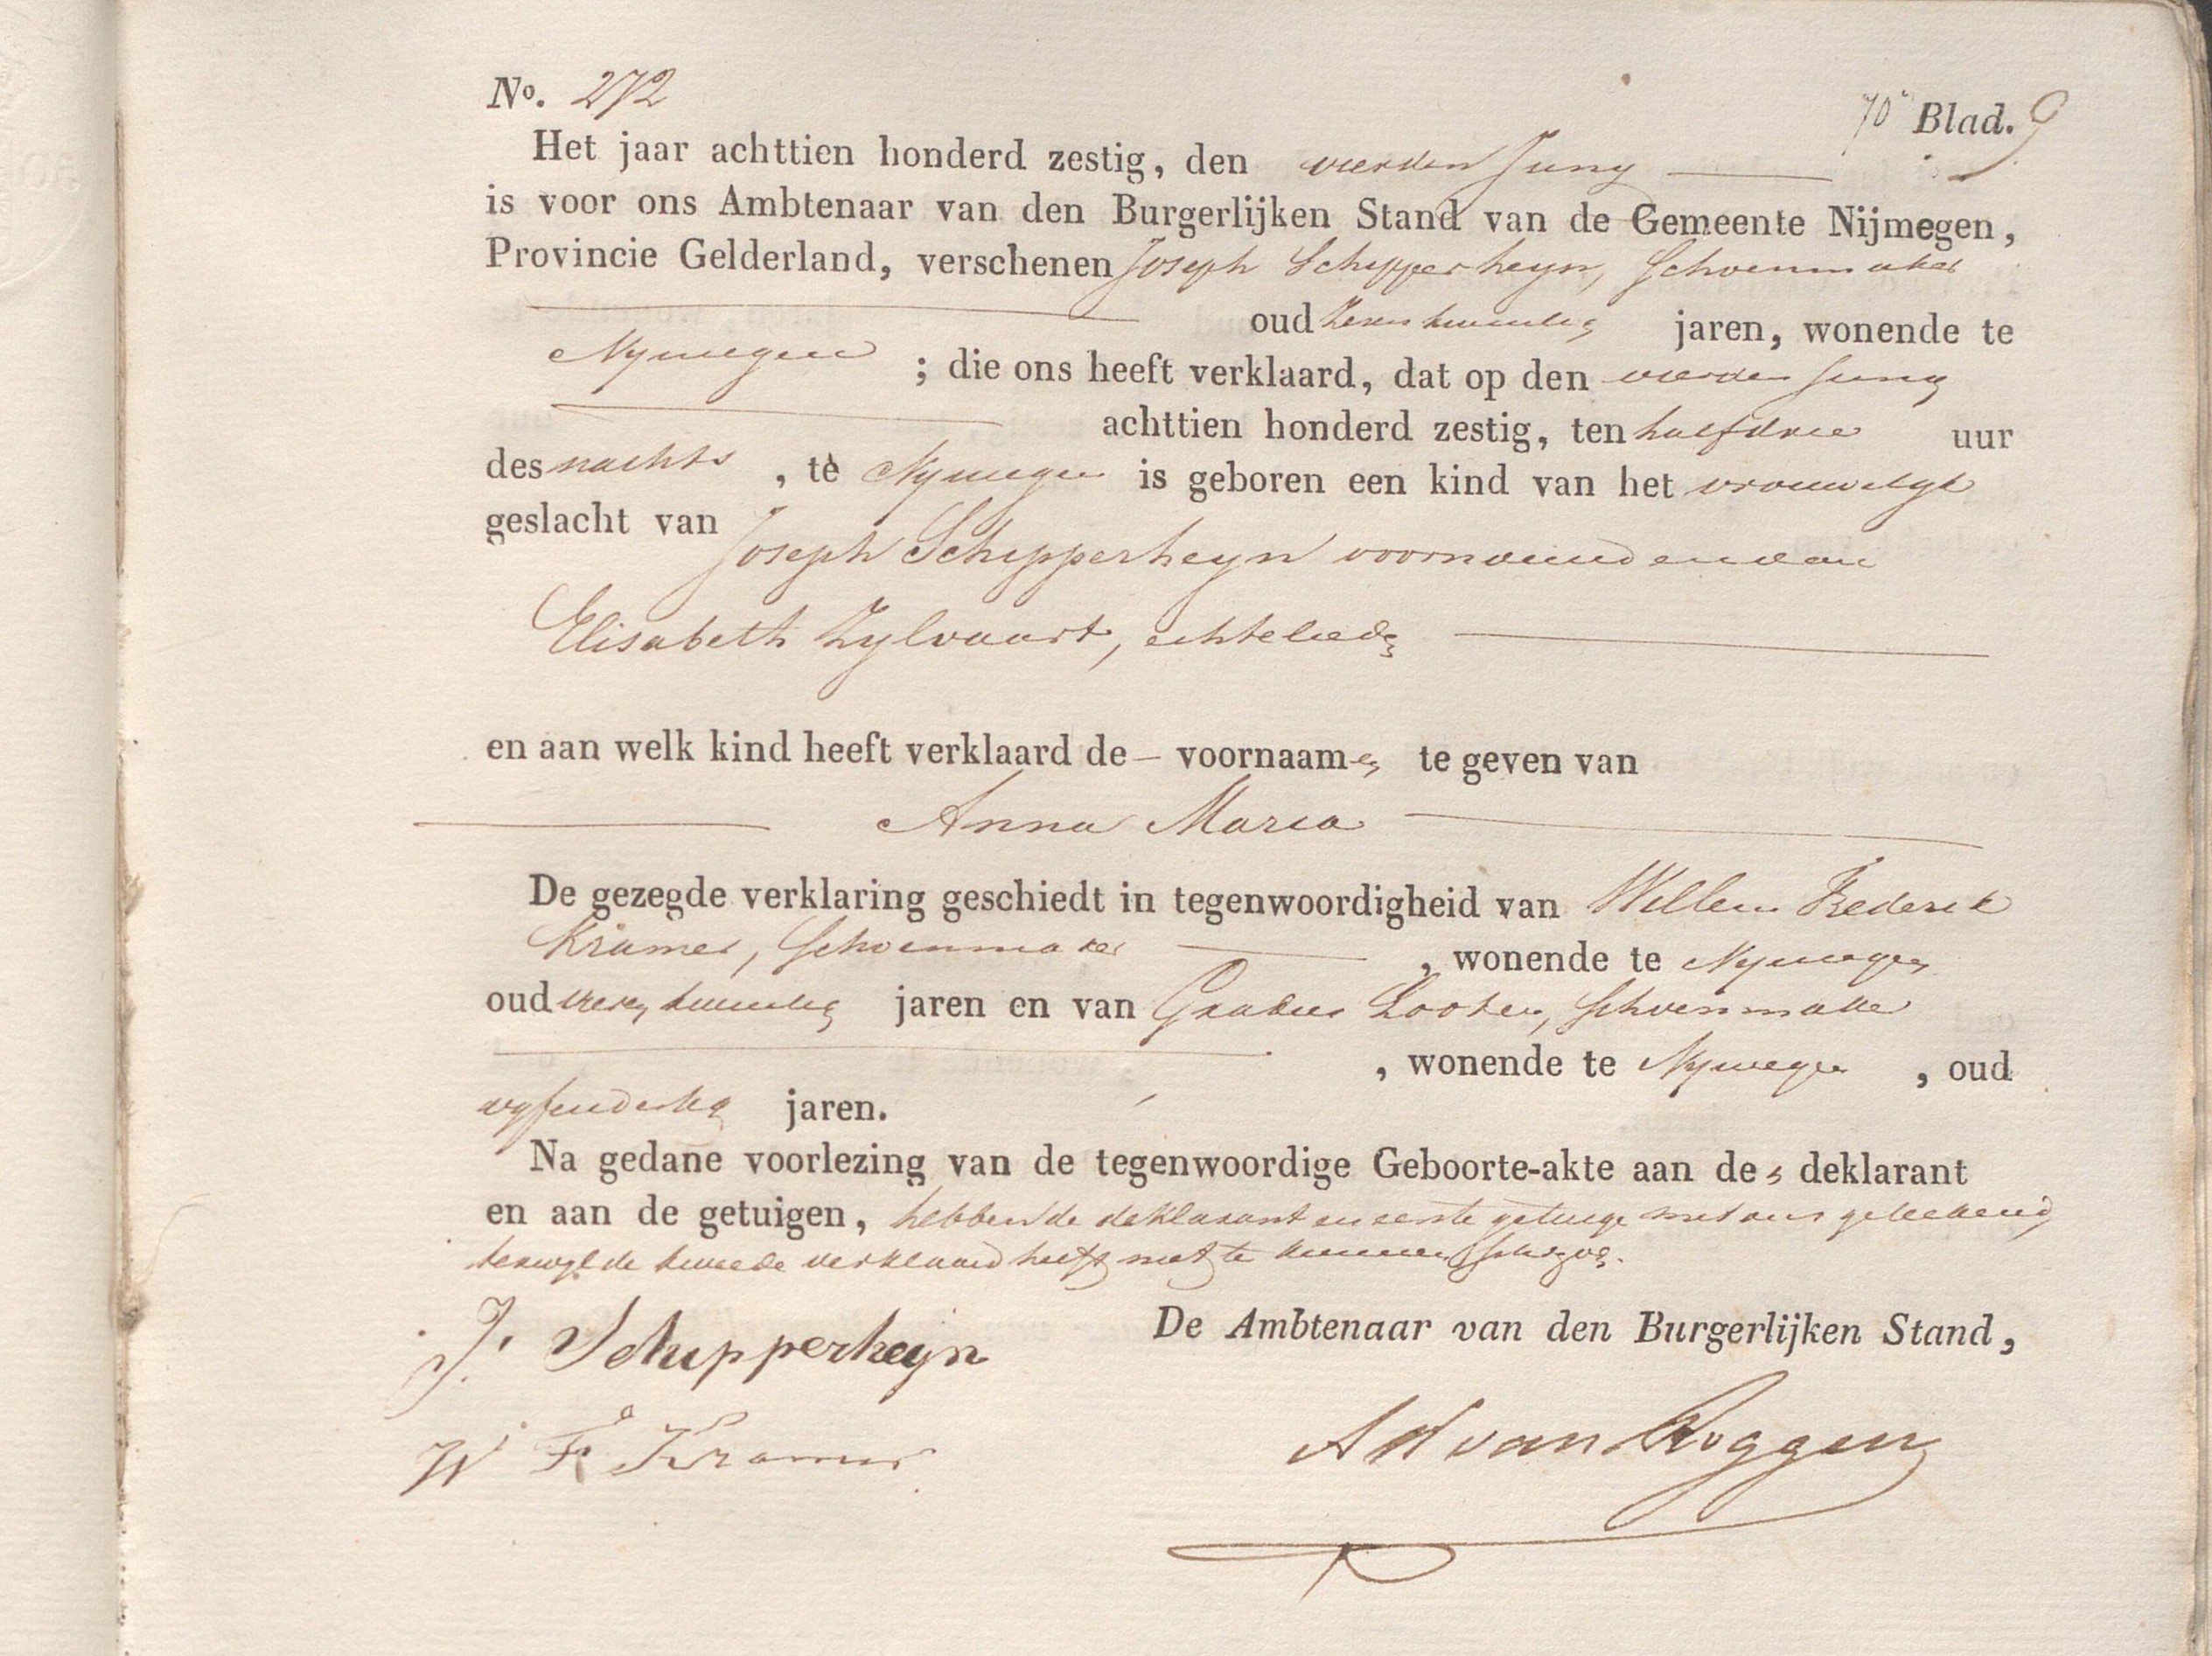 No. 272
70e Blad.
Het jaar achttien honderd zestig, den vierden Juny
is voor ons Ambtenaar van den Burgerlijken Stand van de Gemeente Nijmegen,
Provincie Gelderland, verschenen Joseph Schipperheyn, Schoenmaker
oud jaren, wonende te
Nymegen ; die ons heeft verklaard, dat op den vierden Juny
achttien honderd zestig, ten half drie uur
des nachts , te Nymegen is geboren een kind van het vrouwelyk
geslacht van
Joseph Schipperheyn voornoemd en van
Elisabeth Zylvaart, echtelieden
en aan welk kind heeft verklaard de – voornaamen te geven van
Anna Maria
De gezegde verklaring geschiedt in tegenwoordigheid van Willem Frederik
Kramer, Schoenmaker , wonende te Nymegen
oud jaren en van Gradus Looten, Schoenmaker
, wonende te Nymegen , oud
vyfendertig jaren.
Na gedane voorlezing van de tegenwoordige Geboorte-akte aan den deklarant
en aan de getuigen, hebben de deklarant en eerste getuige met ons geteekend,
terwyl de tweede verklaard heeft niet te kunnen schryven.
J. Schipperheijn
De Ambtenaar van den Burgerlijken Stand,
W F Kramer
van Roggen